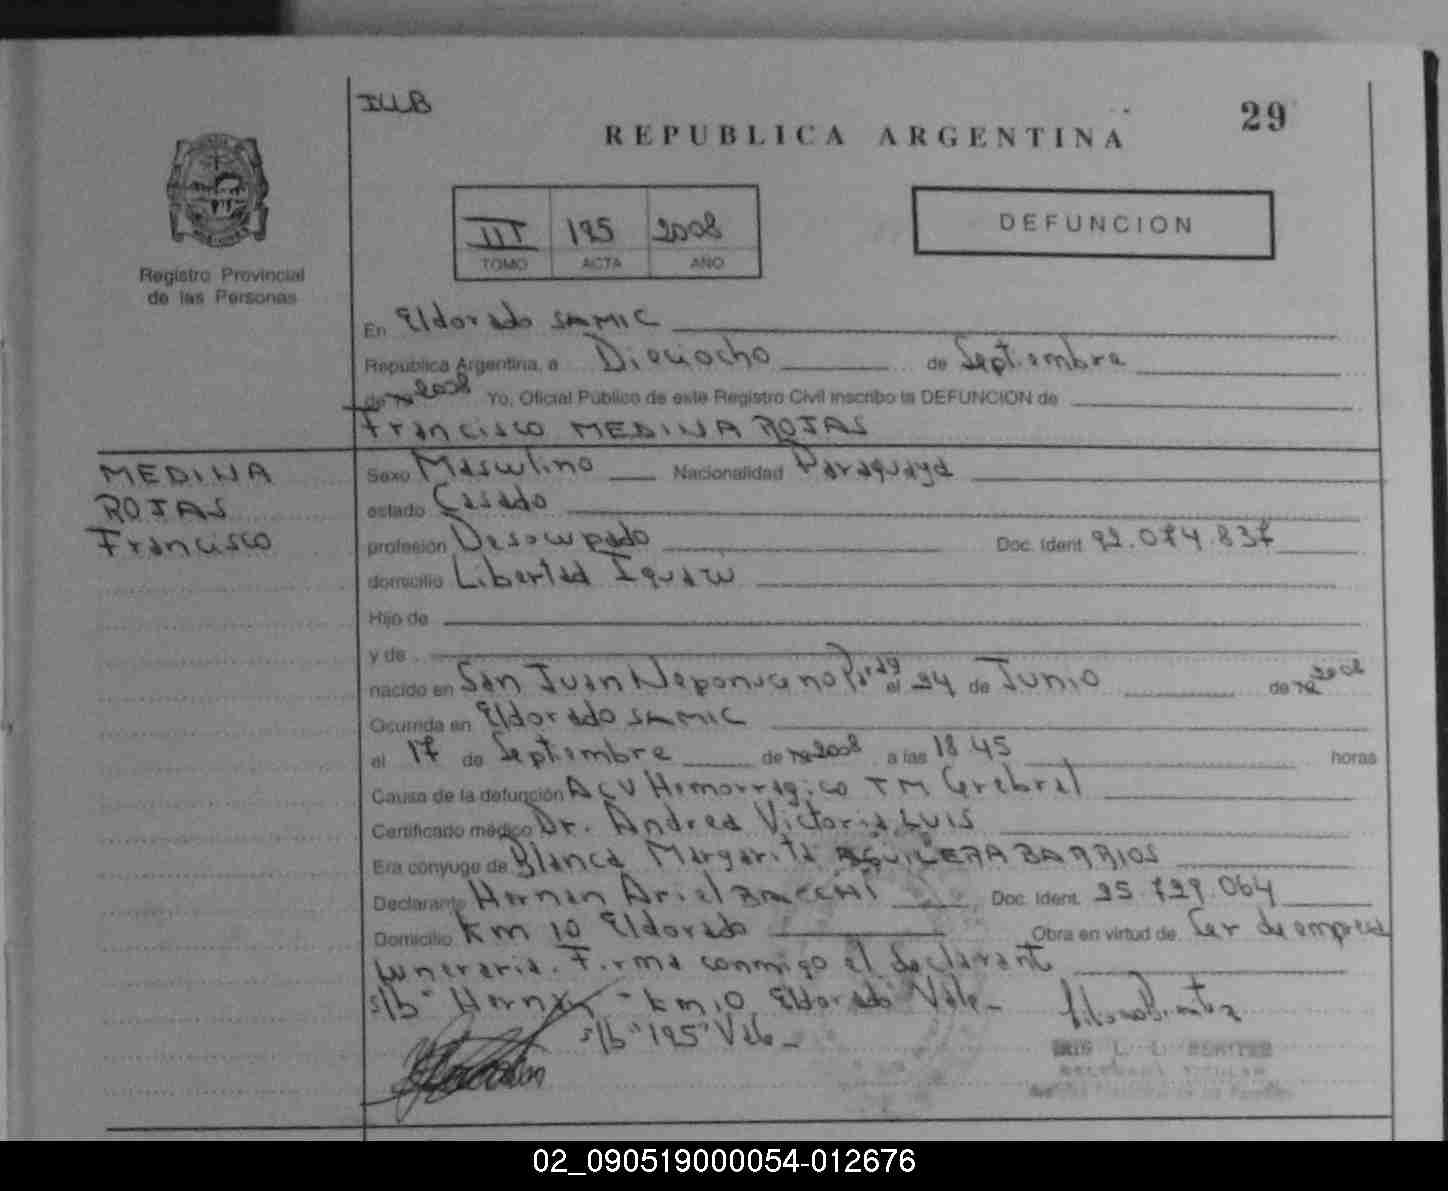 ILLB
29
REPUBLICA ARGENTINA
III 195 2008
TOMO ACTA AÑO
DEFUNCION
Registro Provincial
de las Personas
En Eldorado SAMIC
República Argentina, a Dieciocho de Septiembre
de 2008 Yo, Oficial Público de este Registro Civil inscribo la DEFUNCION de
Francisco MEDINA ROJAS
MEDINA
ROJAS
Francisco
Sexo Masculino Nacionalidad Paraguaya
estado Casado
profesión Desocupado Doc. Ident. 92.074.837
domicilio Libertad Iguazu
Hijo de
y de
nacido en San Juan Nepomuceno el 24 de Junio de 2008
Ocurrida en Eldorado SAMIC
el 17 de Septiembre de 2008 a las 18 45 horas
Causa de la defunción ACV Hemorragico TM Cerebral
Certificado médico Dr. Andrea Victoria LUIS
Era conyuge de Blanca Margarita AGUILERA BARRIOS
Declarante Hernan Ariel BACCHI Doc. Ident. 25.729.064
Domicilio Km 10 Eldorado Obra en virtud de Ser de empresa
funeraria. Firma conmigo el declarante
s/b "Hernan - Km 10 Eldorado" Vale -
s/b "195" Vale -
02_090519000054-012676